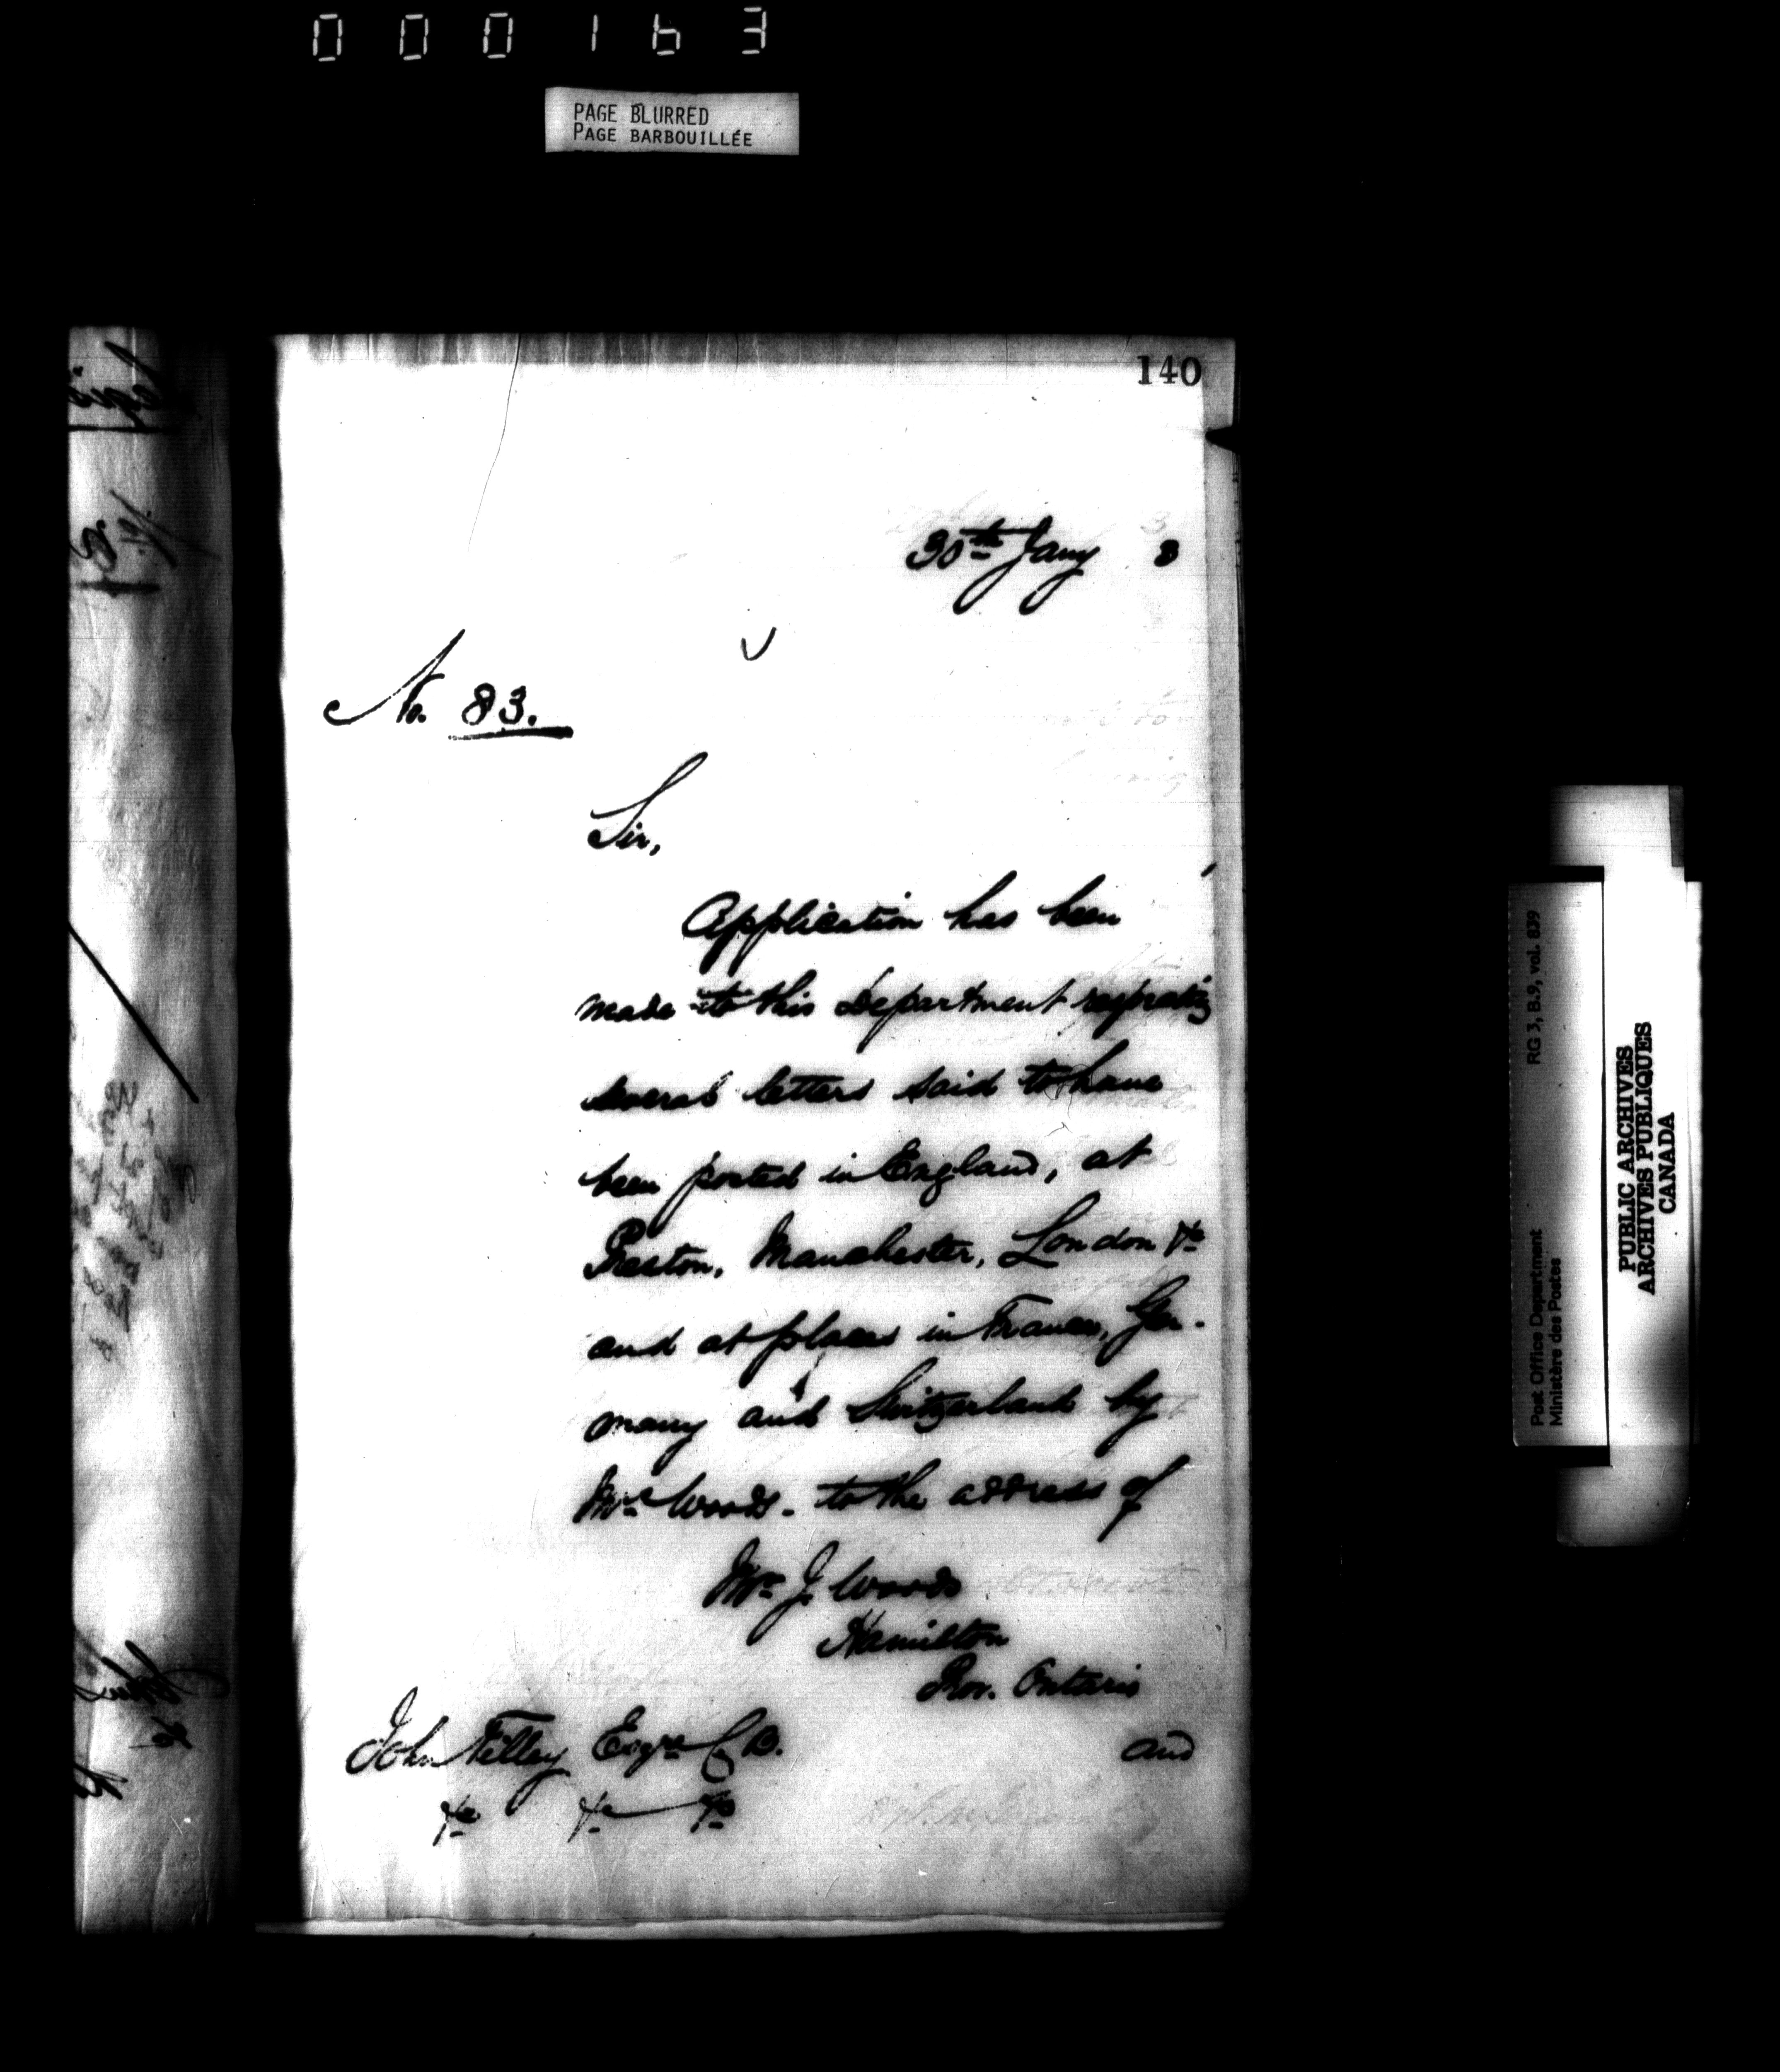 000163
PAGE BLURRED
PAGE BARBOUILLÉE
140
30th Jany 8
No. 83.
Sir,
Application has been
made to this Department respecting
several letters said to have
been posted in England, at
Preston, Manchester, London &c
and at places in France, Ger-
many and Switzerland by
Woods. to the address of
Mr. J. Woods
Hamilton
Prov. Ontario
John Tilley Esqre C.B.
&c &c &c
and
Post Office Department
Ministère des Postes
RG 3, B.9, vol. 839
PUBLIC ARCHIVES
ARCHIVES PUBLIQUES
CANADA